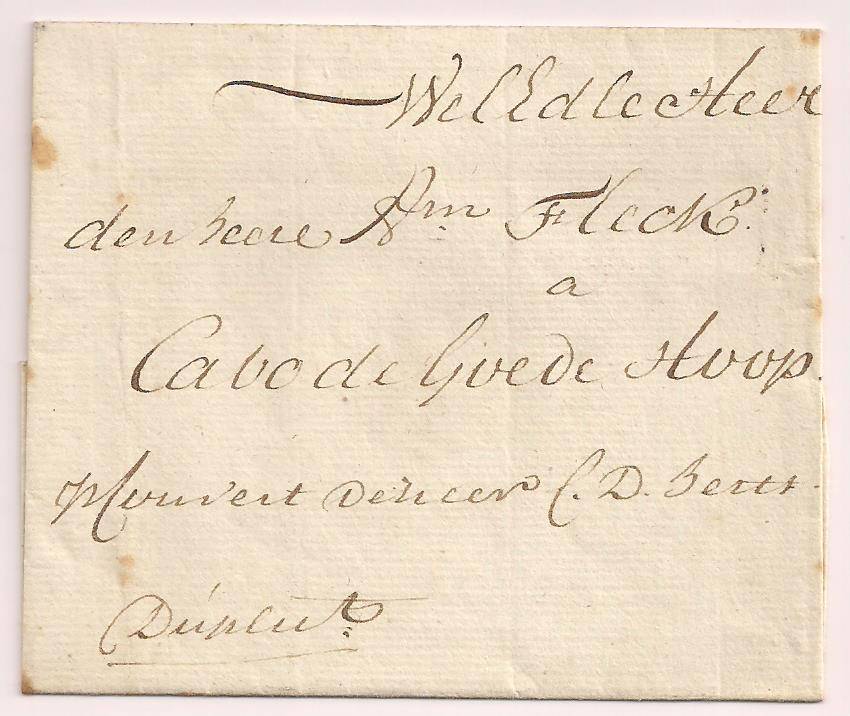 Wel Edle Heer
den heere Am Fleck.
a
Cabo de Goede Hoop.
p Couvert den heer C. D.
Duplcat